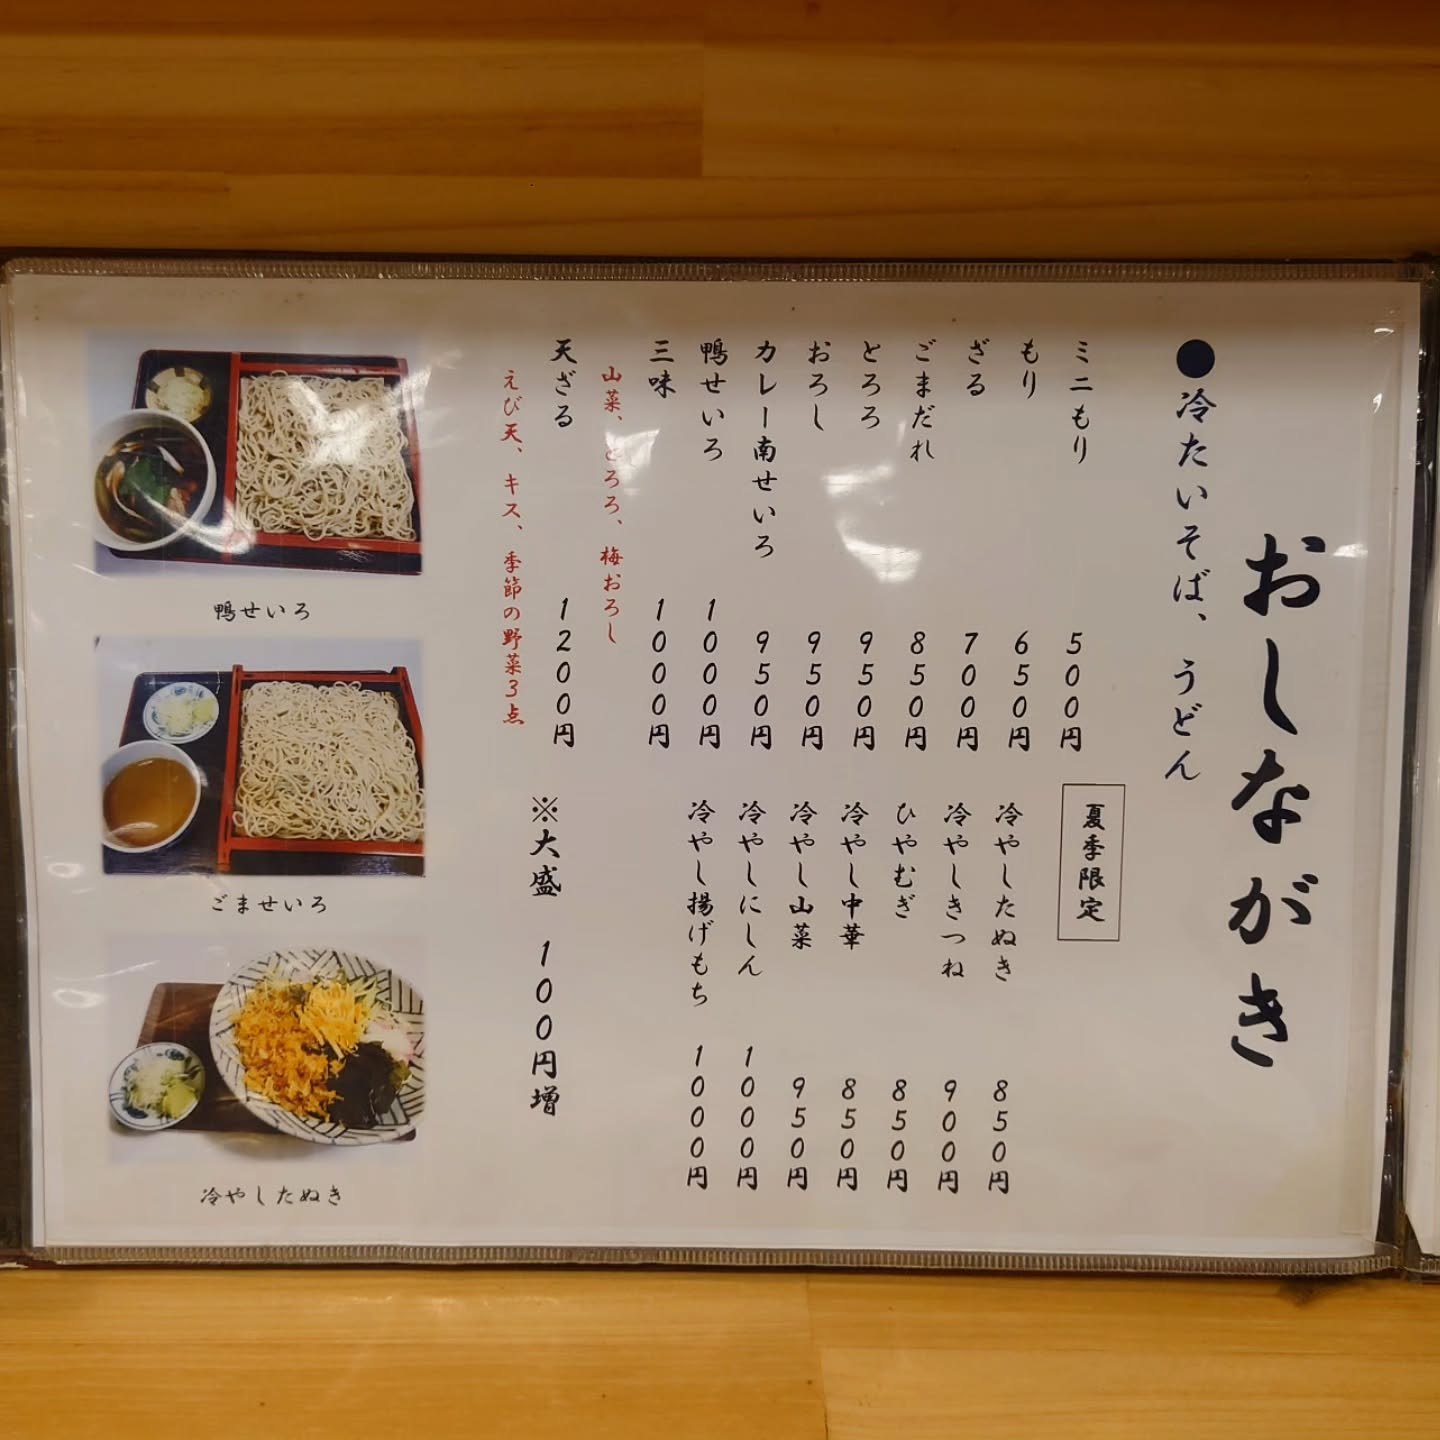 おしながき
●冷たいそば、うどん
ミニもり 500円
もり 650円
ざる 700円
ごまだれ 850円
とろろ 950円
おろし 950円
カレー南せいろ 950円
鴨せいろ 1000円
三味 1000円
山菜、とろろ、梅おろし
天ざる 1200円
えび天、キス、季節の野菜3点
夏季限定
冷やしたぬき 850円
冷やしきつね 900円
ひやむぎ 850円
冷やし中華 850円
冷やし山菜 950円
冷やしにしん 1000円
冷やし揚げもち 1000円
※大盛 100円増
鴨せいろ
ごませいろ
冷やしたぬき